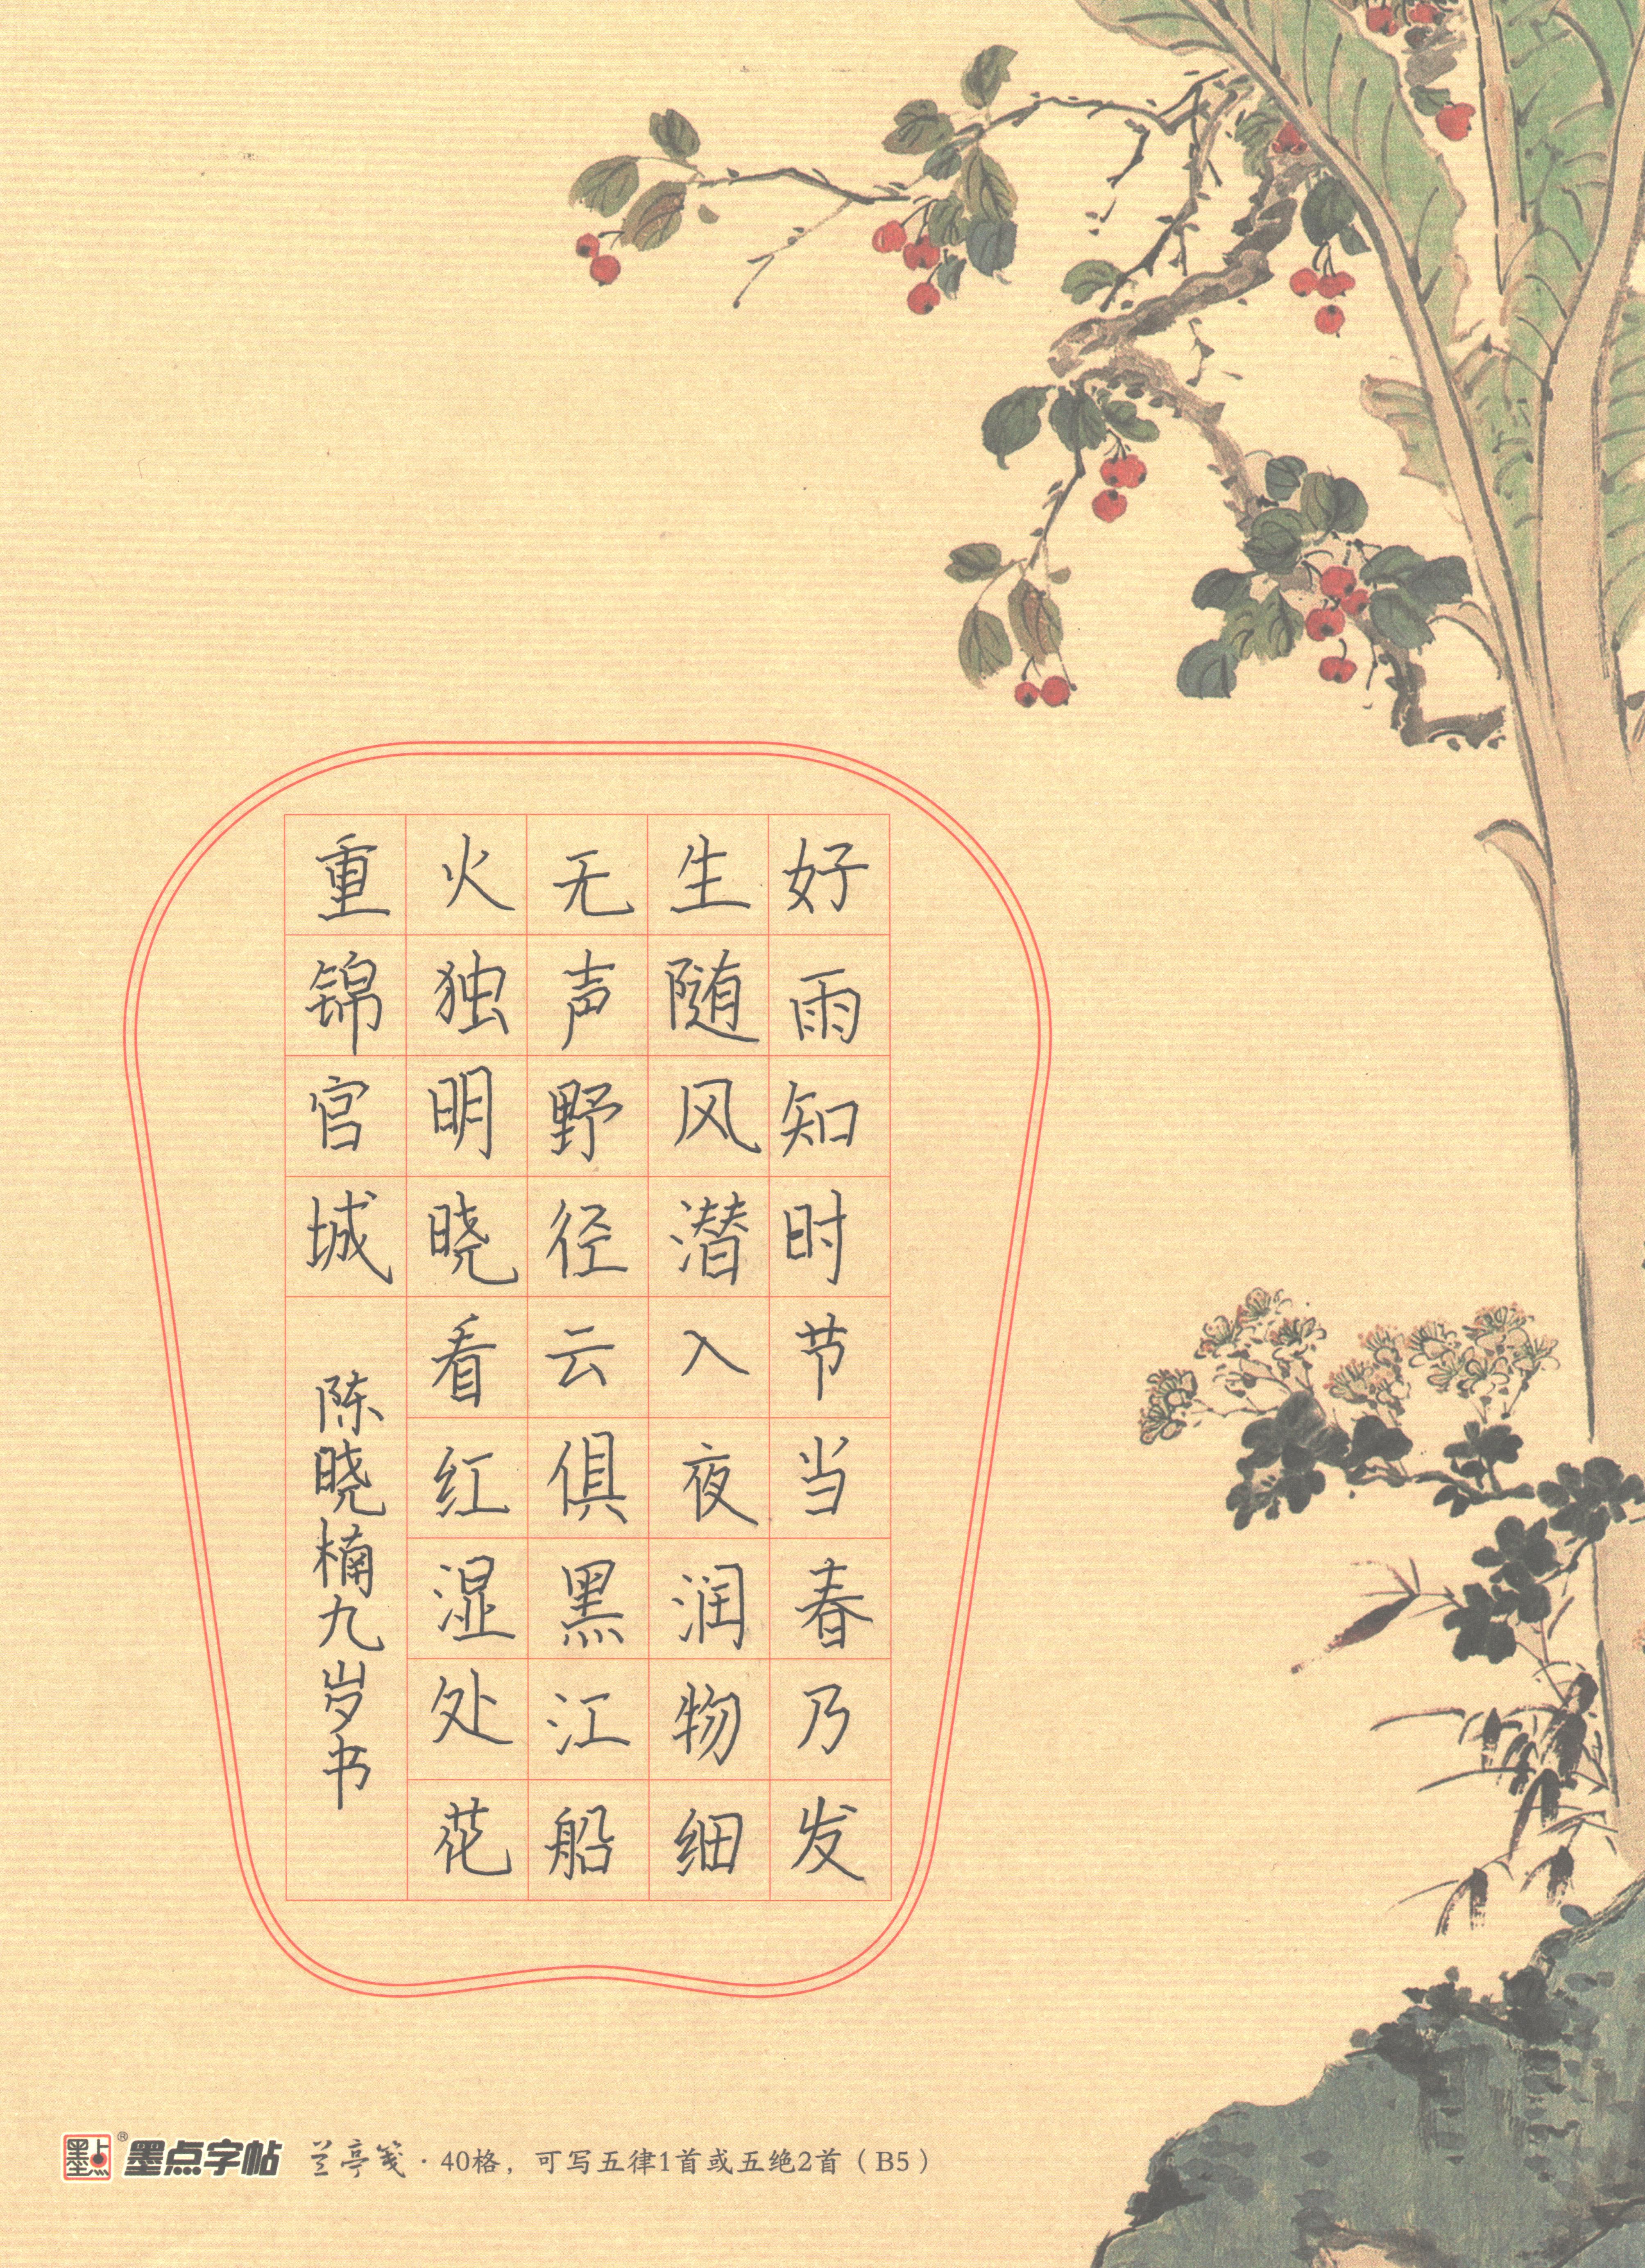 好雨知时节当春乃发
生随风潜入夜润物细
无声野径云俱黑江船
火独明晓看红湿处花
重锦官城
陈晓楠九岁书
墨点® 墨点字帖 兰亭笺·40格，可写五律1首或五绝2首（B5）